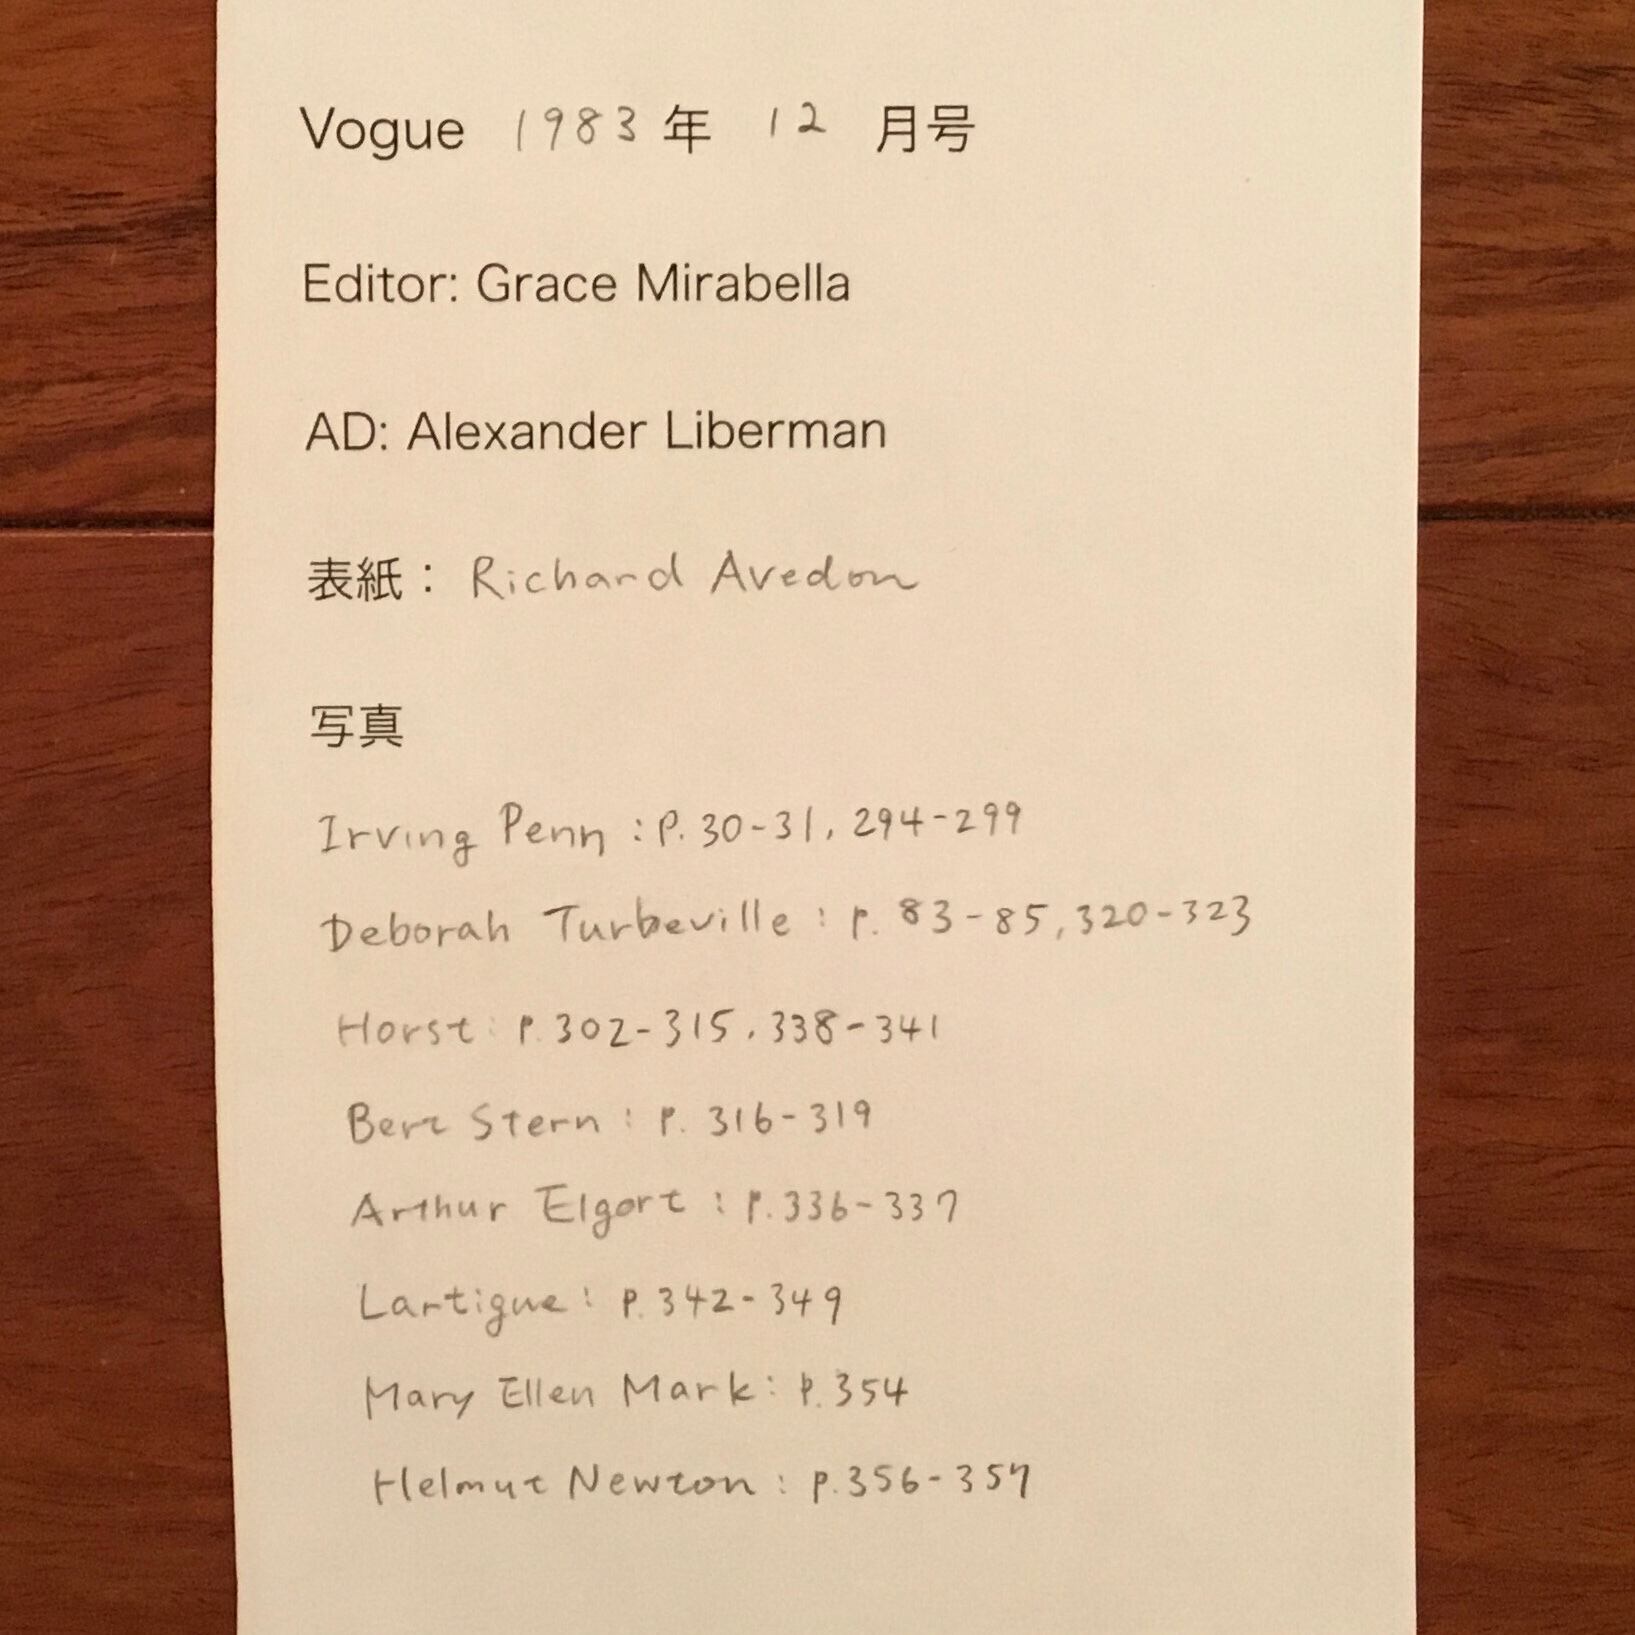 Vogue 1983年 12 月号
Editor: Grace Mirabella
AD: Alexander Liberman
表紙： Richard Avedon
写真
Irving Penn : P. 30-31, 294-299
Deborah Turbeville : p. 83-85, 320-323
Horst : p. 302-315, 338-341
Bert Stern : p. 316-319
Arthur Elgort : p. 336-337
Lartigue : p. 342-349
Mary Ellen Mark : p. 354
Helmut Newton : p. 356-357